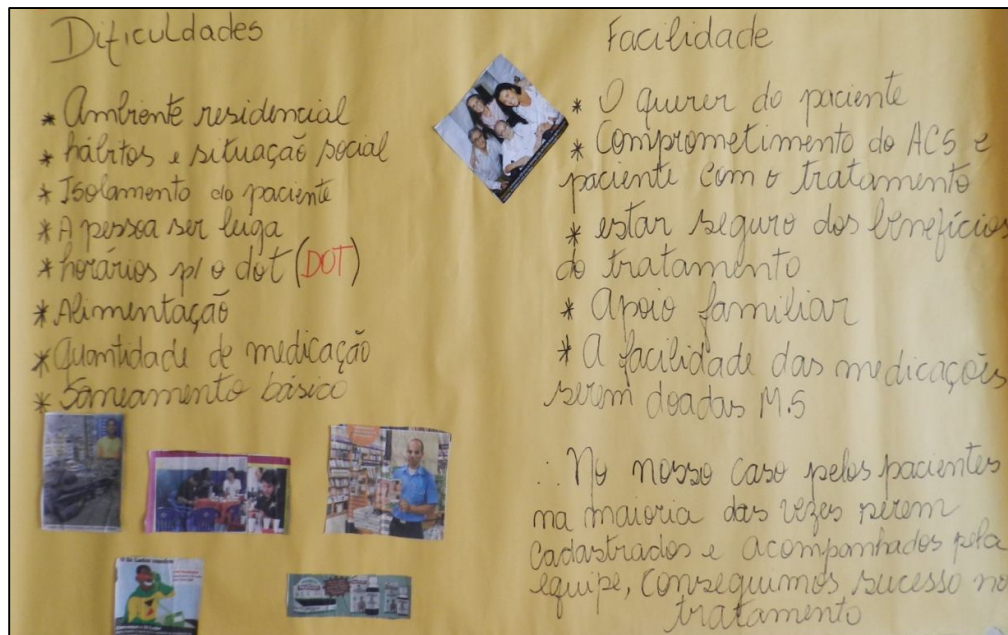 Dificuldades
* Ambiente residencial
* hábitos e situação social
* Isolamento do paciente
* A pessoa ser leiga
* horários p/ o dot (DOT)
* Alimentação
* Quantidade de medicação
* Saneamento básico
Facilidade
* O querer do paciente
* Comprometimento do ACS e
paciente com o tratamento
* estar seguro dos benefícios
do tratamento
* Apoio familiar
* A facilidade das medicações
serem doadas M.S
∴ No nosso caso pelos pacientes
na maioria das vezes serem
cadastrados e acompanhados pela
equipe, conseguimos sucesso no
tratamento